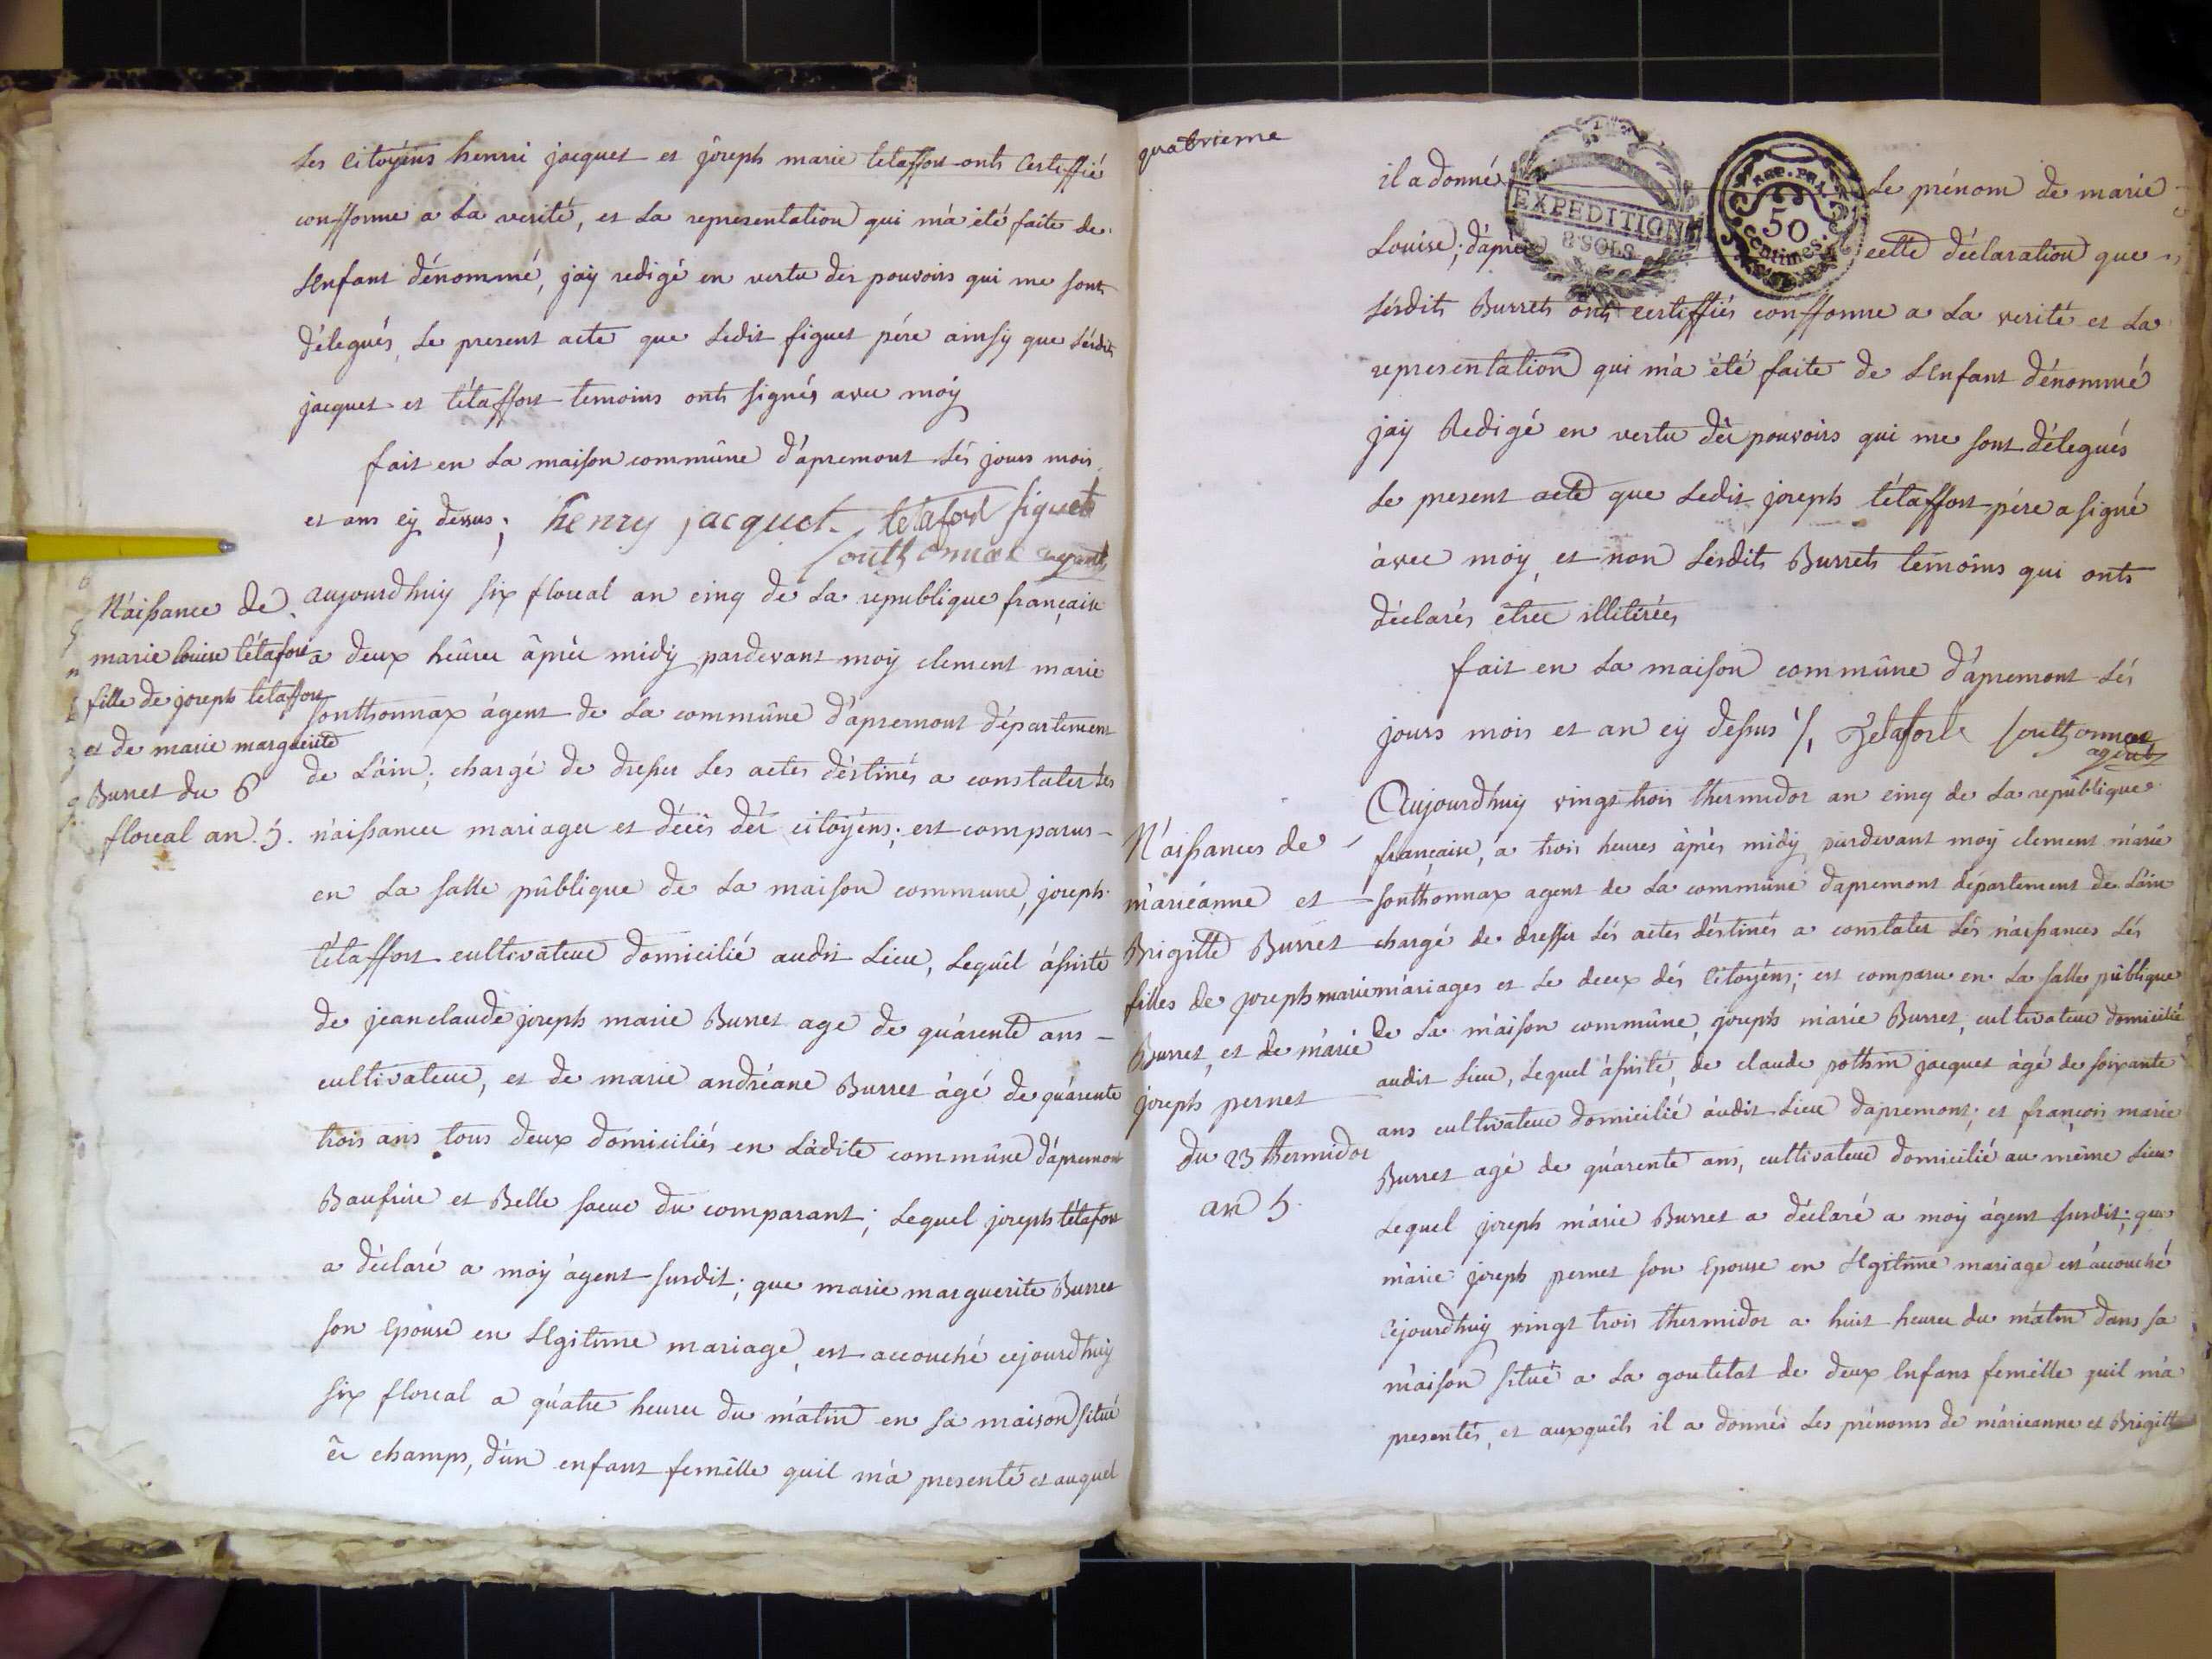 Les Citoÿens henri jacquet et joseph marie tétaffort onts Certiffié
confforme a La verité, et La representation qui m'a été faite de
L'Enfant dénommé, jaÿ redigé en vertu des pouvoirs qui me sont
délegués, Le present acte que Ledit figuet pére ainsÿ que Lésdits
jacquet et tétaffort temoins onts signés avec moÿ
fait en La maison commûne d'apremont Lés jours mois
et ans cÿ dessus; henry jacquet. tetaford figuet
Southonnax agent
Naissance de
marie louise tétafort
fille de joseph tétaffort
et de marie marguerite
Burret du 6
floreal an. 5.
aujourdhuÿ six floreal an cinq de La republique française
a deux heûres âprès midÿ pardevant moÿ clement marie
Sonthonnax ágent de La commûne d'apremont département
de L'ain; chargé de dresser Les actes déstinés a constater Les
naissances mariages et décès dés citoÿéns; est comparus -
en La salle pûblique de La maison commune, joseph
tétaffort cultivateur domicilié audit Lieu, Lequêl ássisté
de jean claude joseph marie Burret age de quárente ans -
cultivateur, et de marie andréane Burret àgé de quárente
trois ans tous deux domiciliés en Ladite commûne d'ápremont
Baufrère et Belle soeur du comparant; Lequel joseph tétafort
a déclaré a moÿ ágent susdit; que marie marguerite Burret
son Epouse en Légitime mariage, est accouché cejourdhuÿ
six floreal a quátre heures du mátin en sa maison situé
és champs, d'ún enfant femêlle quil m'a presenté et auquel
quatrieme
il a donné Le prénom de marie
EXPEDITION
8 SOLS
REP. FRA.
50
centimes.
Louise; d'áprès cette déclaration que
Lésdits Burrets onts certiffiés confforme a La verité et La
representation qui m'a été faite de L'Enfant dénommé
jaÿ Redigé en vertu dês pouvoirs qui me sont délegués
Le present acte que Ledit joseph tétaffort pére a signé
àvec moÿ, et non Lésdits Burrets temoins qui onts
déclarés étrre illitérées
fait en La maison commûne d'ápremont Lés
jours mois et an cÿ dessus /, Tetaforte Southonnax
agent
Naissances de
máriéanne et
Brigitte Burret
filles de joseph marie
Burret, et de márie
joseph pernet
du 23 thermidor
an 5.
Aujourdhuÿ vingt trois thermidor an cinq de La repûblique
française, a trois heures âprès midÿ, pardevant moÿ clement márie
Sonthonnax agent de La commûne dapremont département de Láin
chargé de dresser Lés actes déstinés a constater Lés naissances Lés
máriages et Le decex dés Citoÿéns; est comparu en La salle pûblique
de La maison commûne, joseph márie Burret, cultivateur domicilié
audit Lieu, Lequel ássisté, de claude pothin jacquet àgé de soixante
ans cultivateur domicilié áudit Lieu dapremont; et françois marie
Burret agé de quárente ans, cultivateur domicilié au mème Lieu
Lequel joseph márie Burret a déclaré a moÿ ágent susdit; que
márie joseph pernet son Epouse en Légitime mariage est accouché
Cejourdhuÿ vingt trois thermidor a huit heures du mátin dans sa
maison situé a La goutetat de deux Enfans femêlle quil m'a
presentés, et auxquêls il a donnés Les prénoms de máricanne et Brigitte